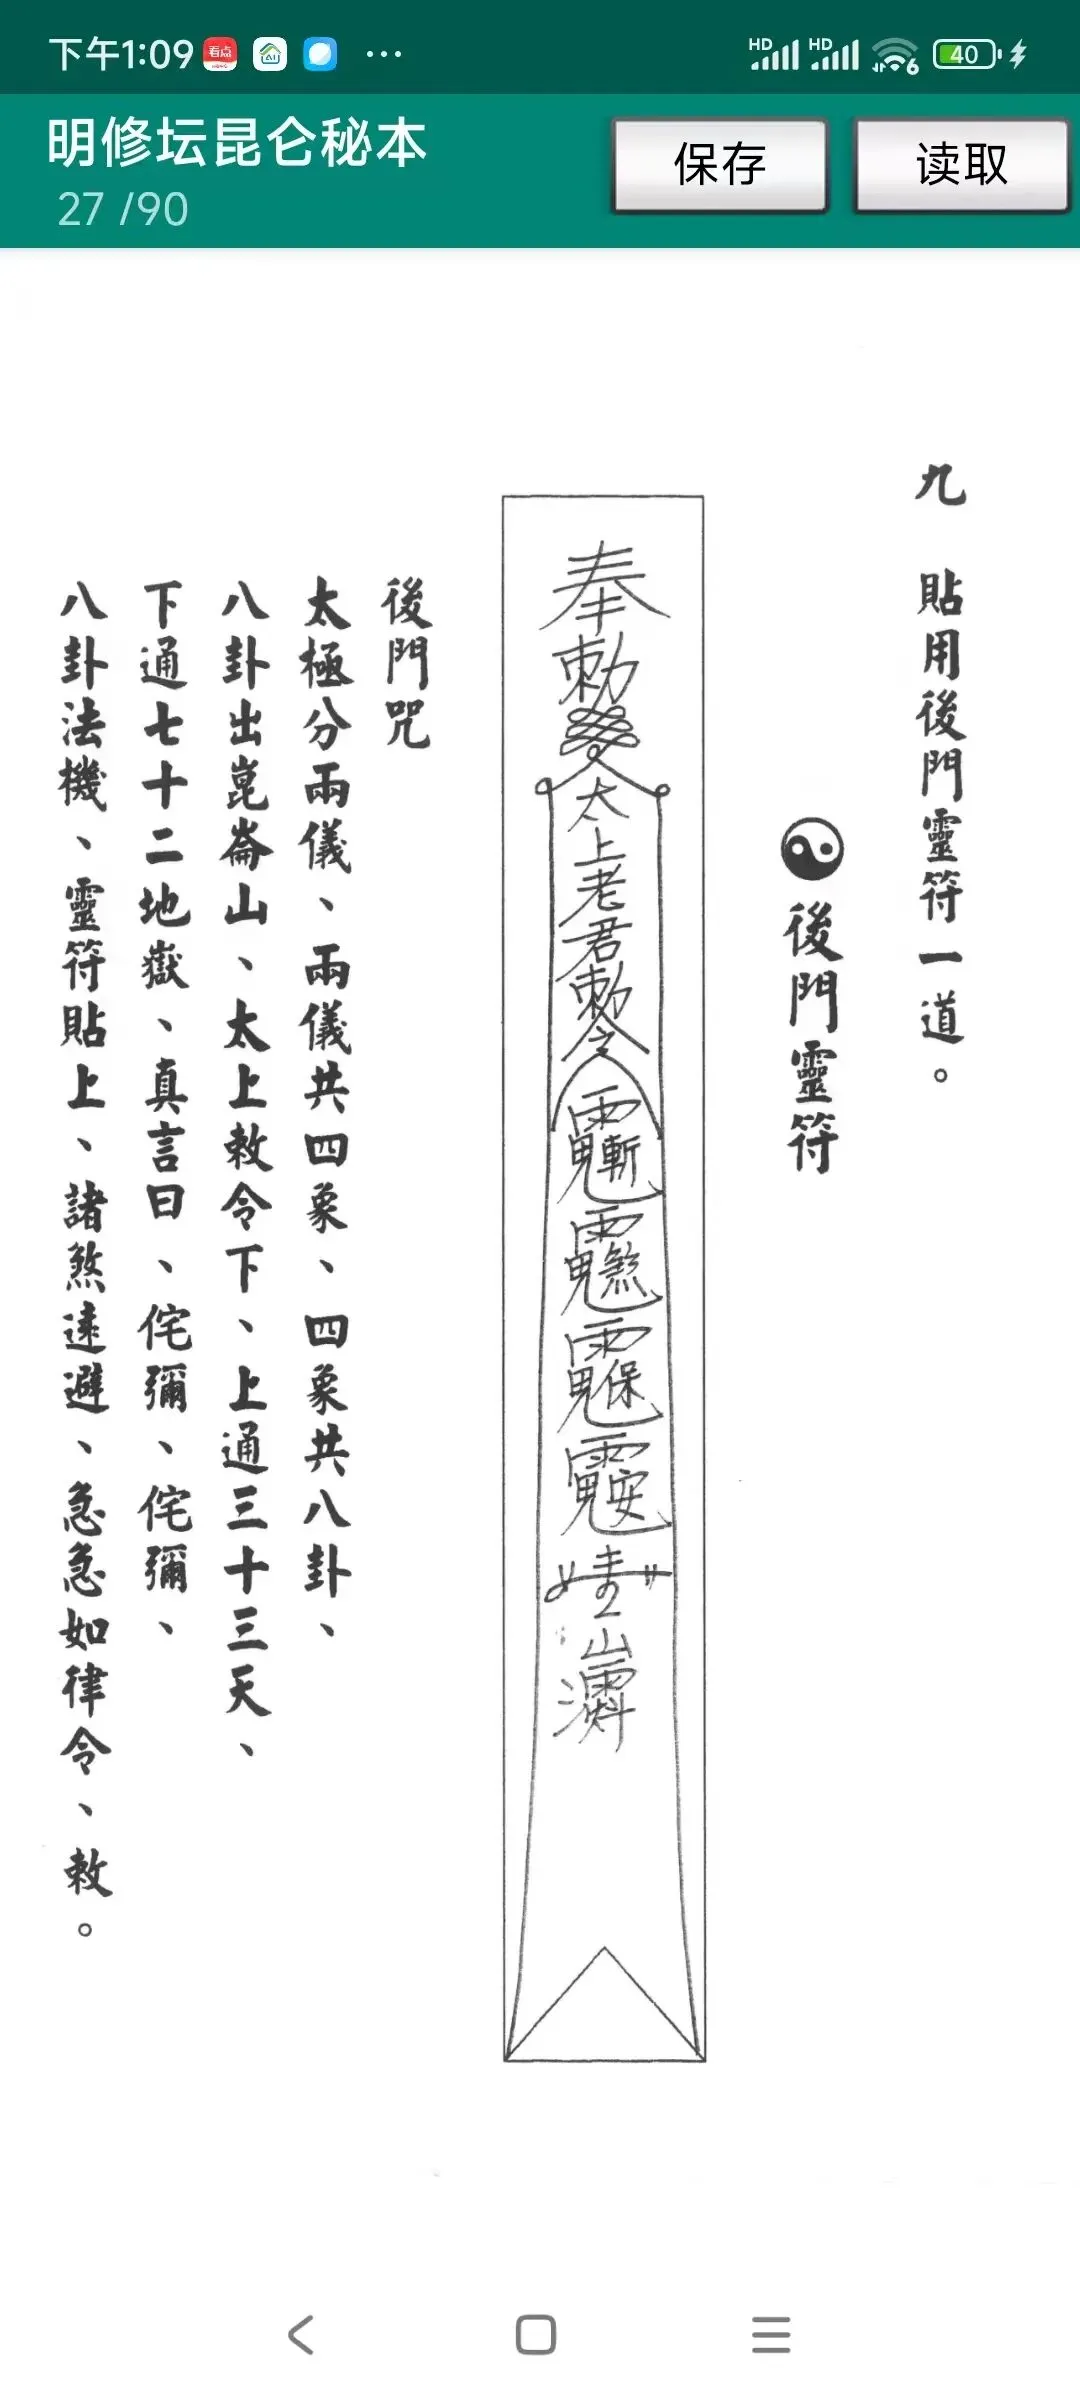 下午1:09
HD HD 6 40
明修坛昆仑秘本
27 /90
保存
读取
九　貼用後門靈符一道。
後門靈符
奉勅
太上老君勅令
後門咒
太極分兩儀、兩儀共四象、四象共八卦、
八卦出崑崙山、太上敕令下、上通三十三天、
下通七十二地獄、真言曰、侘彌、侘彌、
八卦法機、靈符貼上、諸煞遠避、急急如律令、敕。